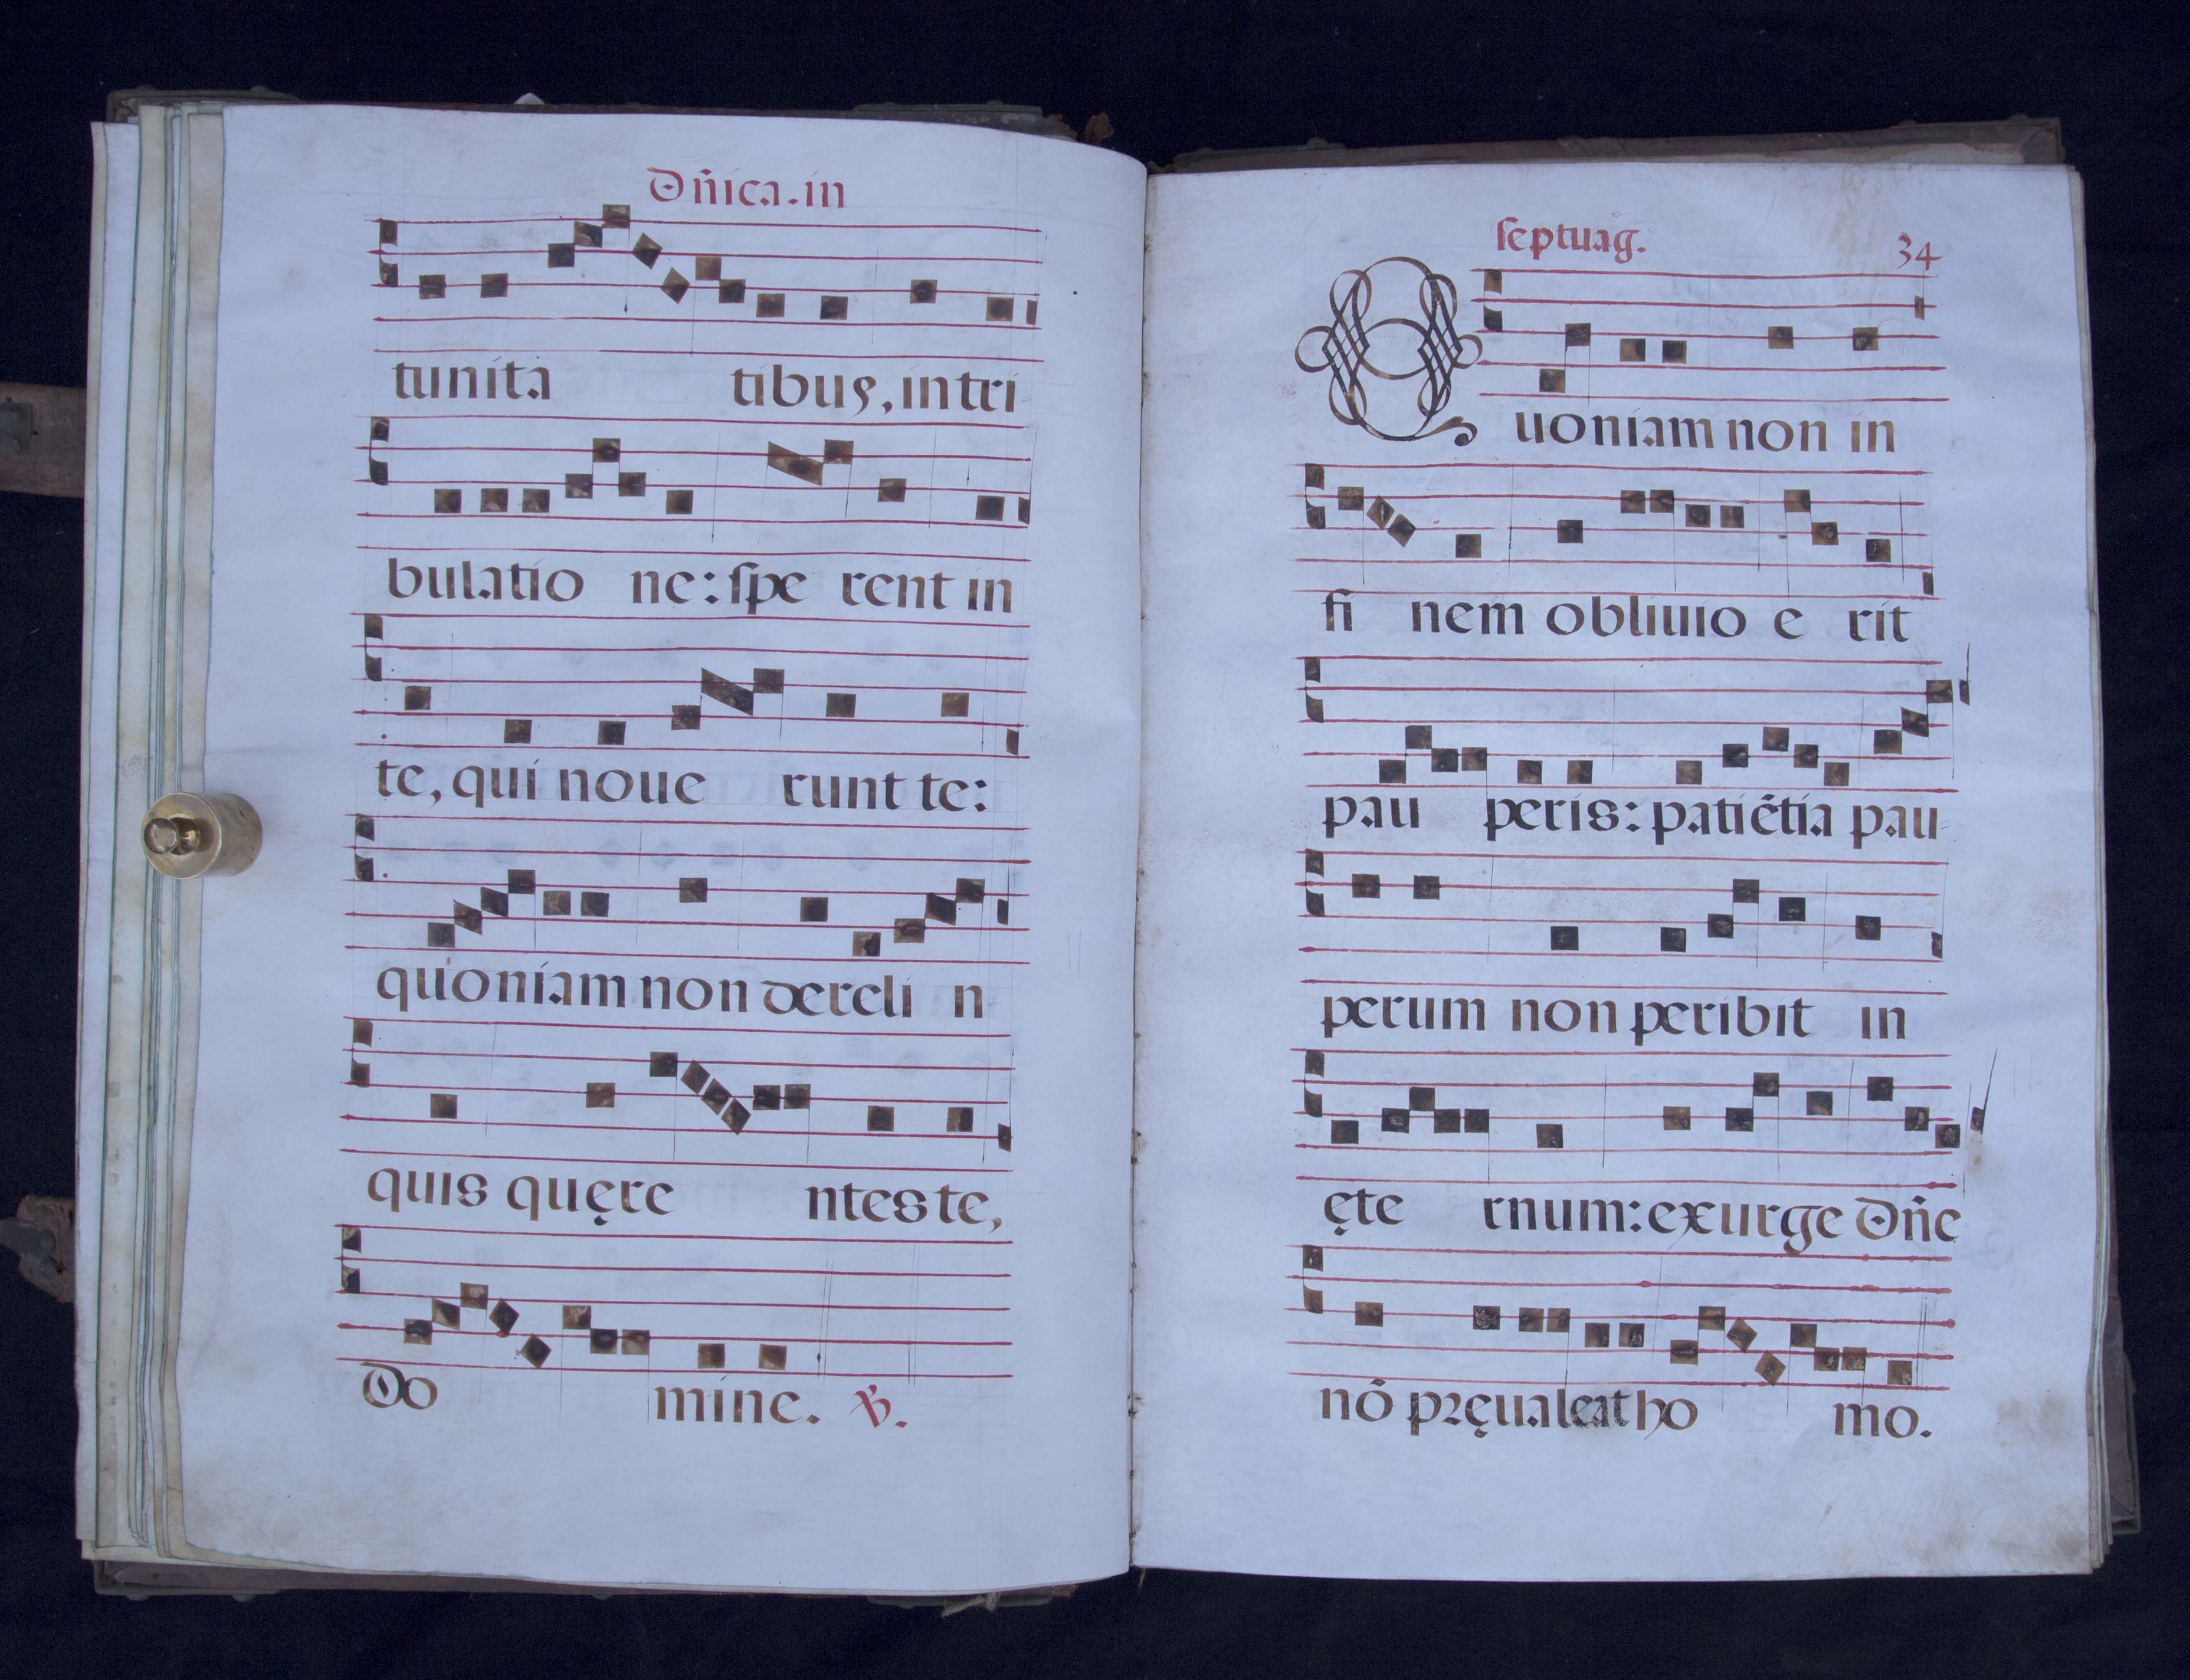 Dñica. in
tunita tibus, in tri
bulatio ne: ſpe rent in
te, qui noue runt te:
quoniam non dereli n
quis quęre ntes te,
Do mine. ℣.
ſeptuag. 34
Quoniam non in
fi nem obliuio e rit
pau peris: patiẽtia pau
perum non peribit in
ęte rnum: exurge Dñe
nõ pręualeat ho mo.